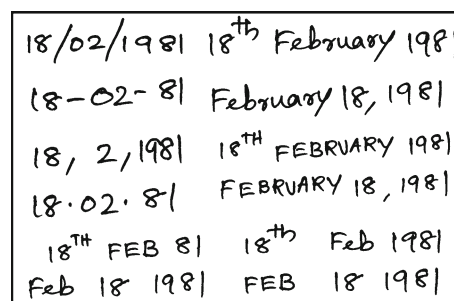 18/02/1981 18th February 198
18-02-81 February 18, 1981
18, 2, 1981 18TH FEBRUARY 1981
18.02.81 FEBRUARY 18, 1981
18TH FEB 81 18th Feb 1981
Feb 18 1981 FEB 18 1981